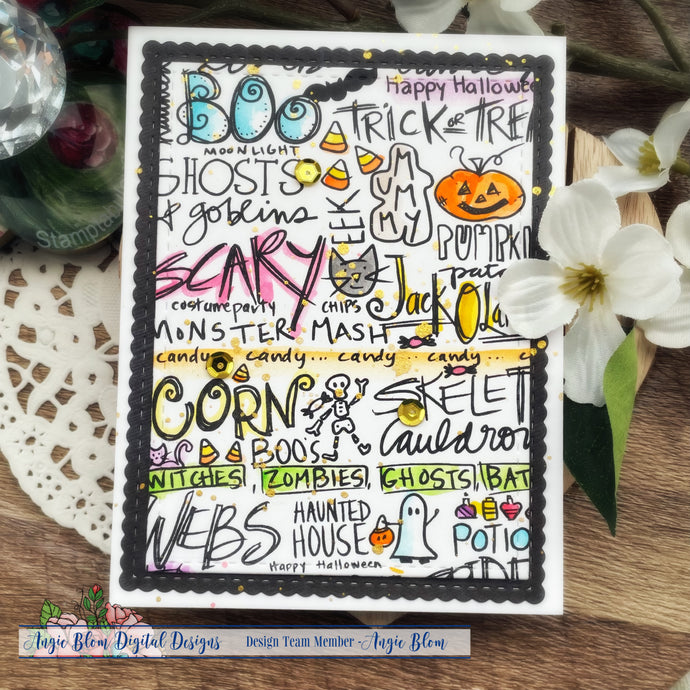 Happy Hallowee
BOO
TRICK OR TREA
MOONLIGHT
GHOSTS
& goblins
EEK
MUMMY
PUMPKI
patc
SCARY
costume party
CHIPS
JACK O LA
MONSTER MASH
candy candy... candy... candy... c
CORN
SKELET
BOO'S
Cauldron
WITCHES, ZOMBIES, GHOSTS, BAT
WEBS
HAUNTED
HOUSE
POTIO
Happy Halloween
Stampla
Angie Blom Digital Designs
Design Team Member - Angie Blom